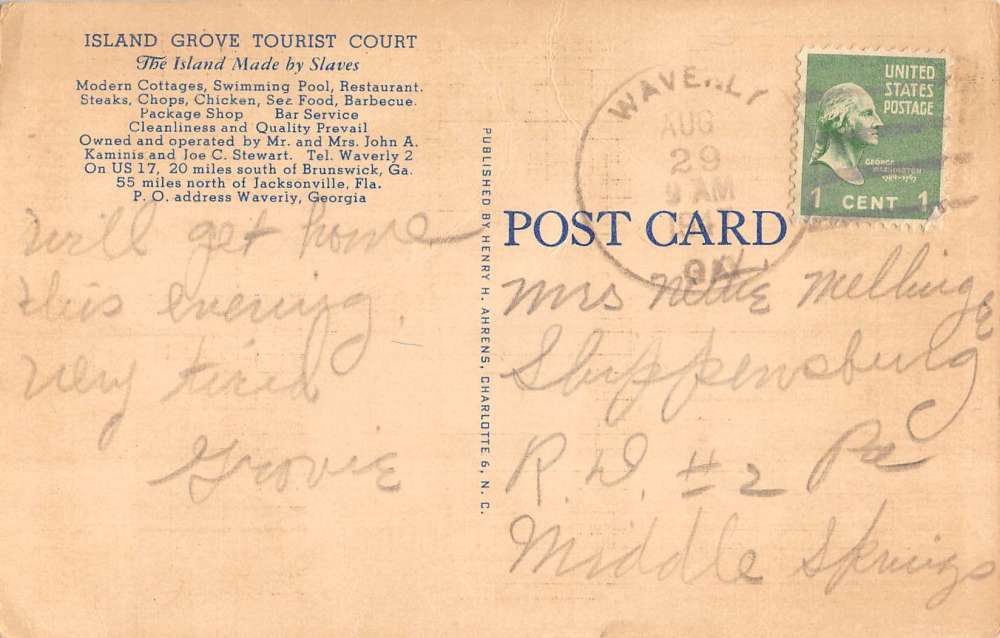 ISLAND GROVE TOURIST COURT
The Island Made by Slaves
Modern Cottages, Swimming Pool, Restaurant.
Steaks, Chops, Chicken, See Food, Barbecue.
Package Shop Bar Service
Cleanliness and Quality Prevail
Owned and operated by Mr. and Mrs. John A.
Kaminis and Joe C. Stewart. Tel. Waverly 2
On US 17, 20 miles south of Brunswick, Ga.
55 miles north of Jacksonville, Fla.
P. O. address Waverly, Georgia
will get home
this evening.
very tired
Grovie
PUBLISHED BY HENRY H. AHRENS, CHARLOTTE 6, N. C.
WAVERLY
AUG
29
9 AM
UNITED
STATES
POSTAGE
GEORGE
WASHINGTON
1789-1797
1 CENT 1
POST CARD
Mrs Nettie
Shippensburg
R. D. #2 Pa
Middle Springs